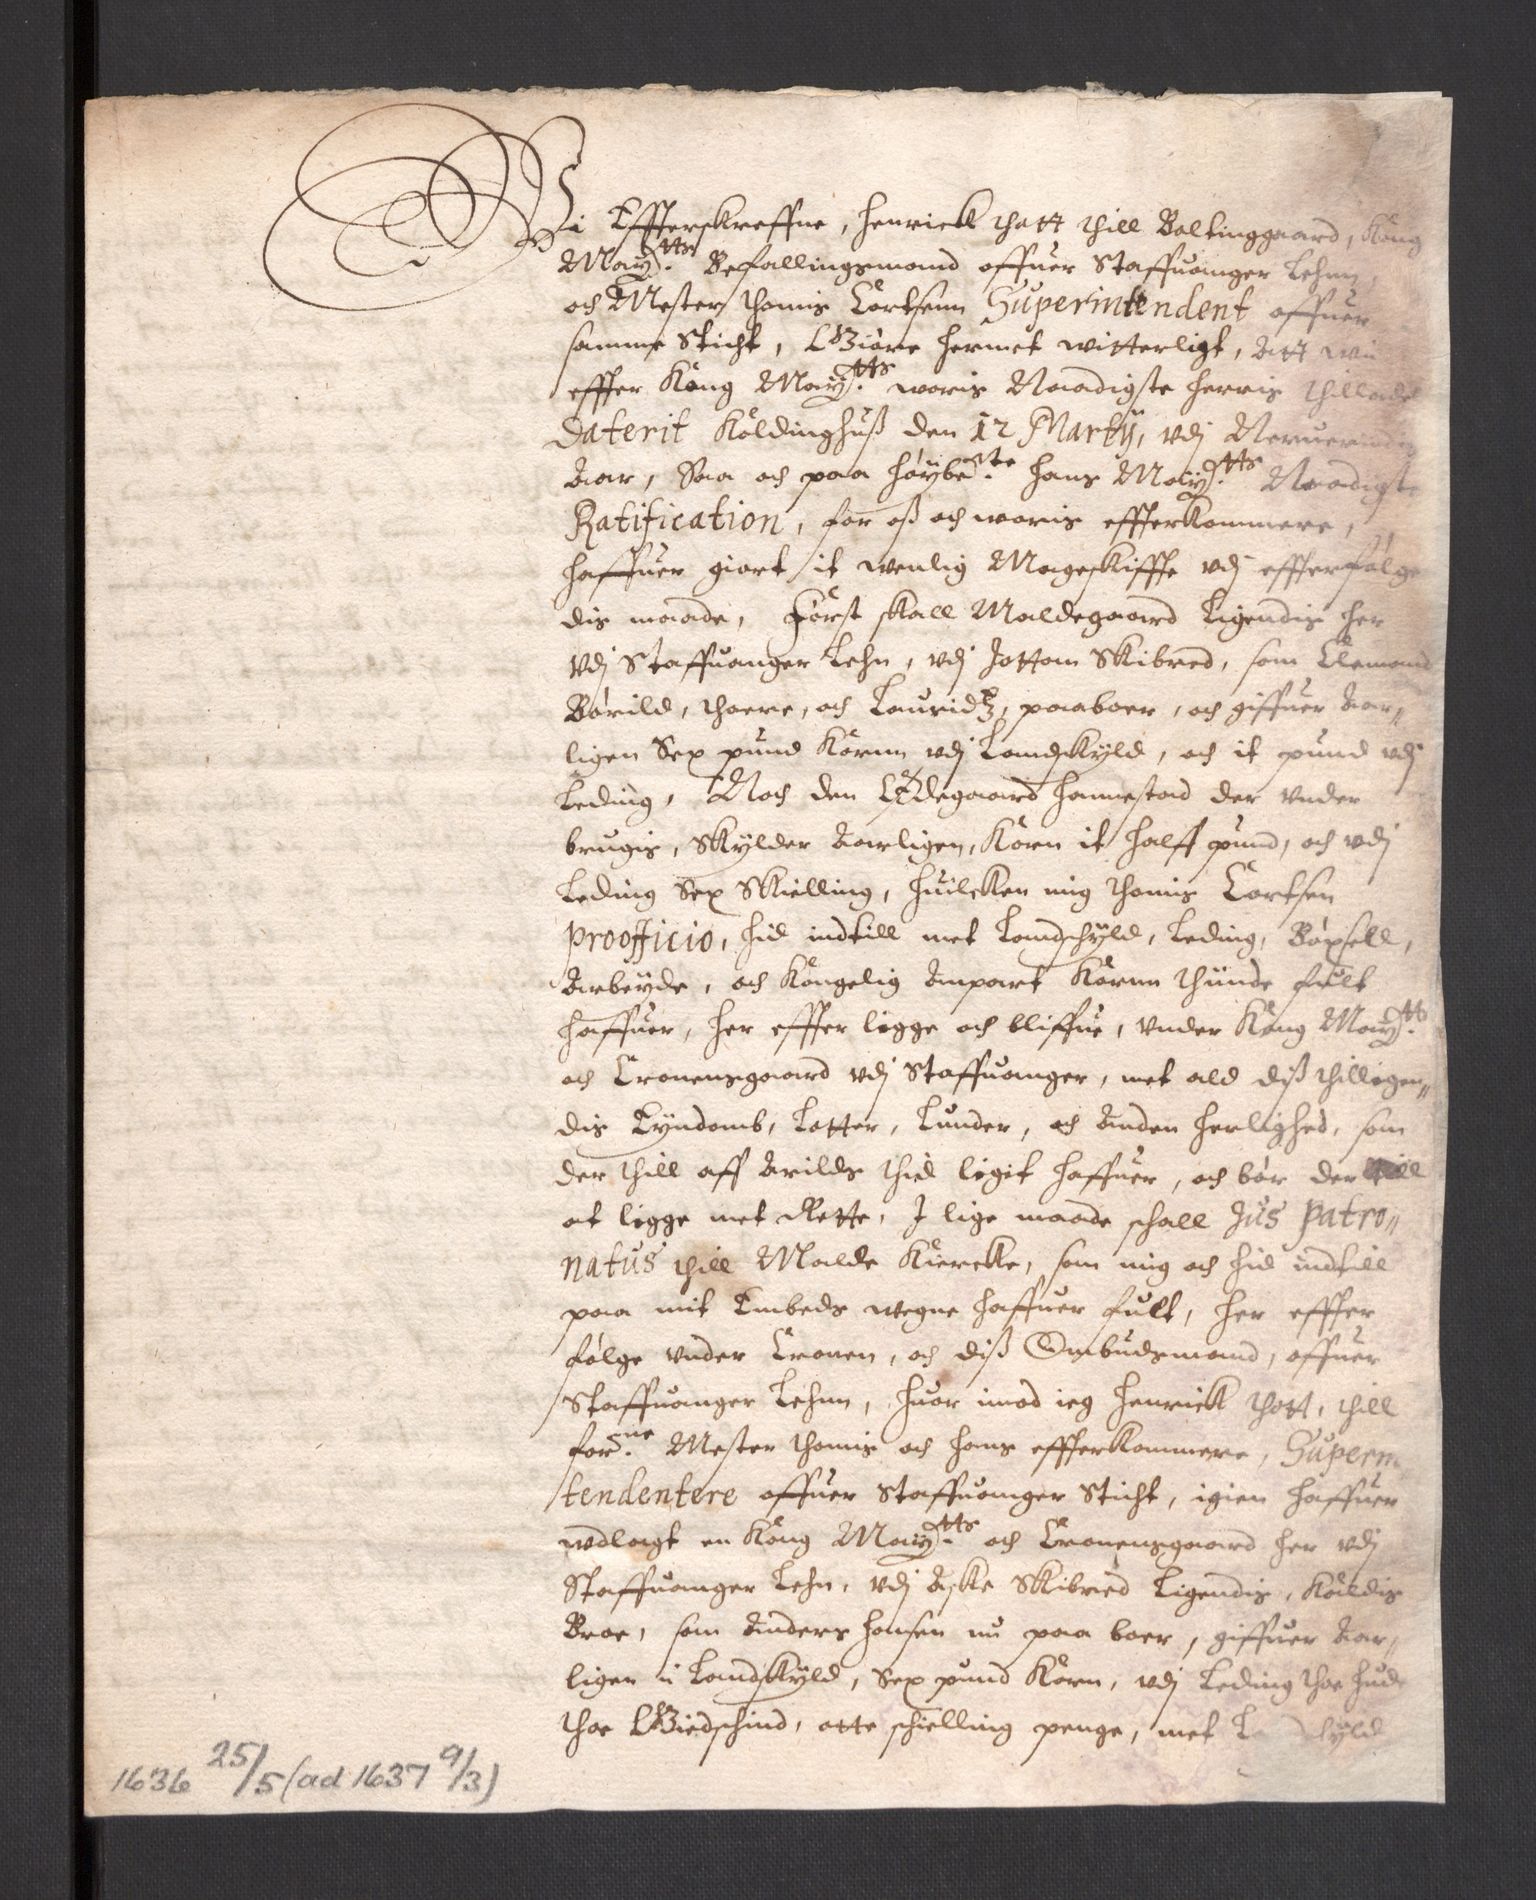 Wi Effterskreffne, Henrick Thott thill Boltinggaard, Kong
May:tts Befallingsmand offuer Staffuanger Lehnn,
och Mester Thomis Cortsenn Superintendent offuer
samme Sticht, Giöre hermet witterligt, Att wii
effter Kong May:tts woris Naadigste herris thillade
Daterit Koldinghuß den 12 Martij, vdj Neruerindis
Aar, Saa och paa høybe:te hans May:tts Naadigste
Ratification, for oß och woris effterkommere,
haffuer giort it wenlig Mageskiffte vdj effterfølge
dis maade, Først skall Maldegaard Ligendis her
vdj Staffuanger Lehn, vdj Jottom Skibred, som Clemond
Børild, Thoere, och Lauridtz, paaboer, och giffuer Aar„
ligen Sex pund Kornn vdj Landskyld, och it pund vdj
Leding, Noch den Ødegaard Hannestad der vnder
brugis, Skylder Aarligen, Korn it halff pund, och vdj
Leding Sex Skielling, huilcken mig Thomis Cortsen
pro officio, hid indtill met Landschyld, Leding, Bøxsell,
Arbeyde, och Kongelig Anpart Kornn Thiinde fult
haffuer, her effter ligge och bliffue, vnder Kong May:tts
och Cronensgaard vdj Staffuanger, met ald diß thilligen„
dis Eyndomb, Lotter, Lunder, och Anden herlighed, som
der thill aff Arilds thid ligit haffuer, och bør der till
at ligge met Rette, I lige maade schall Jus Patro„
natus thill Malde Kiercke, som mig och hid indtill
paa mit Embeds wegne haffuer fult, her effter
følge vnder Cronen, och diß Ombudsmand, offuer
Staffuanger Lehnn, huor imod ieg Henrick Thott, thill
for:ne Mester Thomis och hans effterkommere, Superin
tendentere offuer Staffuanger Sticht, igien haffuer
wdlagt en Kong May:tts och Cronensgaard her vdj
Staffuanger Lehn, vdj Aske Skibred Ligendis, Køldis
Broe, som Anders Hansen nu paa boer, giffuer Aar„
ligen i Landskyld, Sex pund Korn, vdj Leding thoe hude
thoe Giedschind, otte schielling penge, met Landskyld
1636 25/5 (ad 1637 9/3)